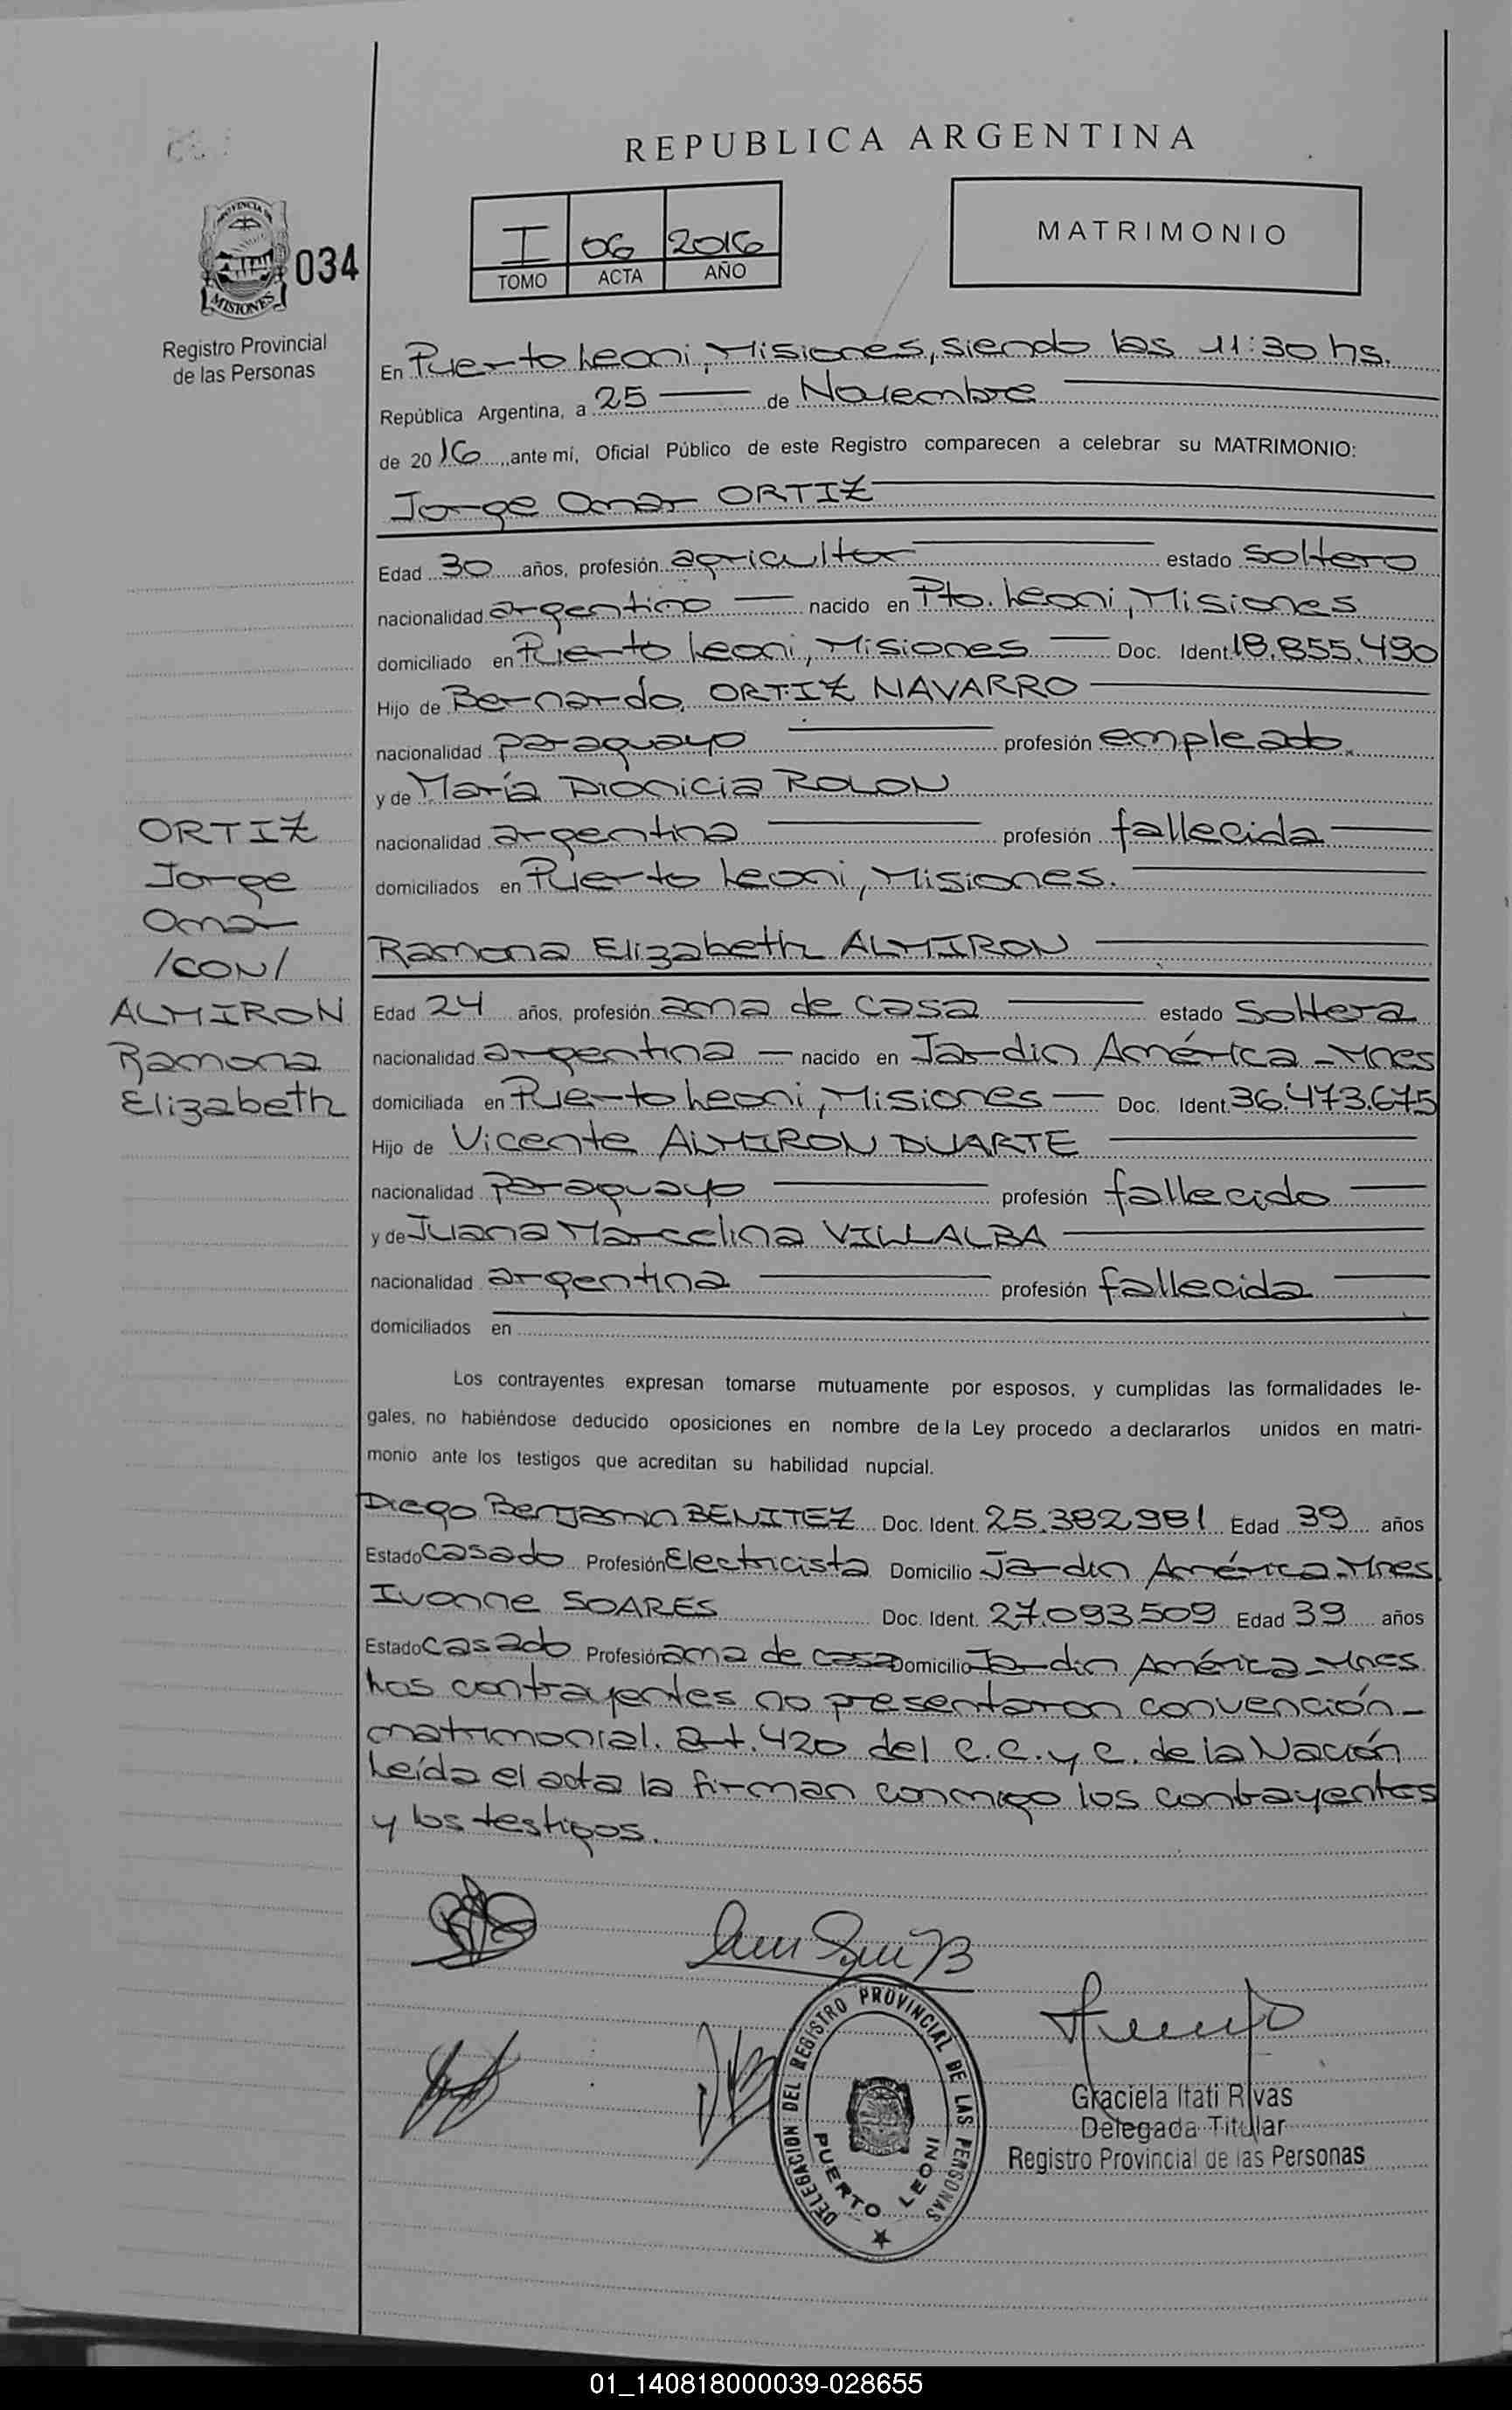 REPUBLICA ARGENTINA
I 06 2016
TOMO ACTA AÑO
MATRIMONIO
PROVINCIA DE
MISIONES
034
Registro Provincial
de las Personas
En Puerto Leoni, Misiones, siendo las 11:30 hs.
República Argentina, a 25 de Noviembre
de 2016, ante mí, Oficial Público de este Registro comparecen a celebrar su MATRIMONIO:
Jorge Omar ORTIZ
Edad 30 años, profesión agricultor estado soltero
nacionalidad argentino nacido en Pto. Leoni, Misiones
domiciliado en Puerto Leoni, Misiones Doc. Ident. 18.855.490
Hijo de Bernardo ORTIZ NAVARRO
nacionalidad paraguayo profesión empleado.
y de María Dionicia ROLON
nacionalidad argentina profesión fallecida
domiciliados en Puerto Leoni, Misiones.
ORTIZ
Jorge
Omar
/CON/
ALMIRON
Ramona
Elizabeth
Ramona Elizabeth ALMIRON
Edad 24 años, profesión ama de casa estado Soltera
nacionalidad argentina nacido en Jardin América - Mnes
domiciliada en Puerto Leoni, Misiones Doc. Ident. 36.473.675
Hijo de Vicente ALMIRON DUARTE
nacionalidad Paraguayo profesión fallecido
y de Juana Marcelina VILLALBA
nacionalidad argentina profesión fallecida
domiciliados en
Los contrayentes expresan tomarse mutuamente por esposos, y cumplidas las formalidades le-
gales, no habiéndose deducido oposiciones en nombre de la Ley procedo a declararlos unidos en matri-
monio ante los testigos que acreditan su habilidad nupcial.
Diego Benjamin BENITEZ Doc. Ident. 25.382.981 Edad 39 años
Estado casado Profesión Electricista Domicilio Jardin América - Mnes.
Ivonne SOARES Doc. Ident. 27.093.509 Edad 39 años
Estado casado Profesión ama de casa Domicilio Jardin América - Mnes
Los contrayentes no presentaron convención
matrimonial. art. 420 del C.C. y C. de la Nación
Leída el acta la firman conmigo los contrayentes
y los testigos.
DELEGACION DEL REGISTRO PROVINCIAL DE LAS PERSONAS
PUERTO LEONI
Graciela Itati Rivas
Delegada Titular
Registro Provincial de las Personas
01_140818000039-028655